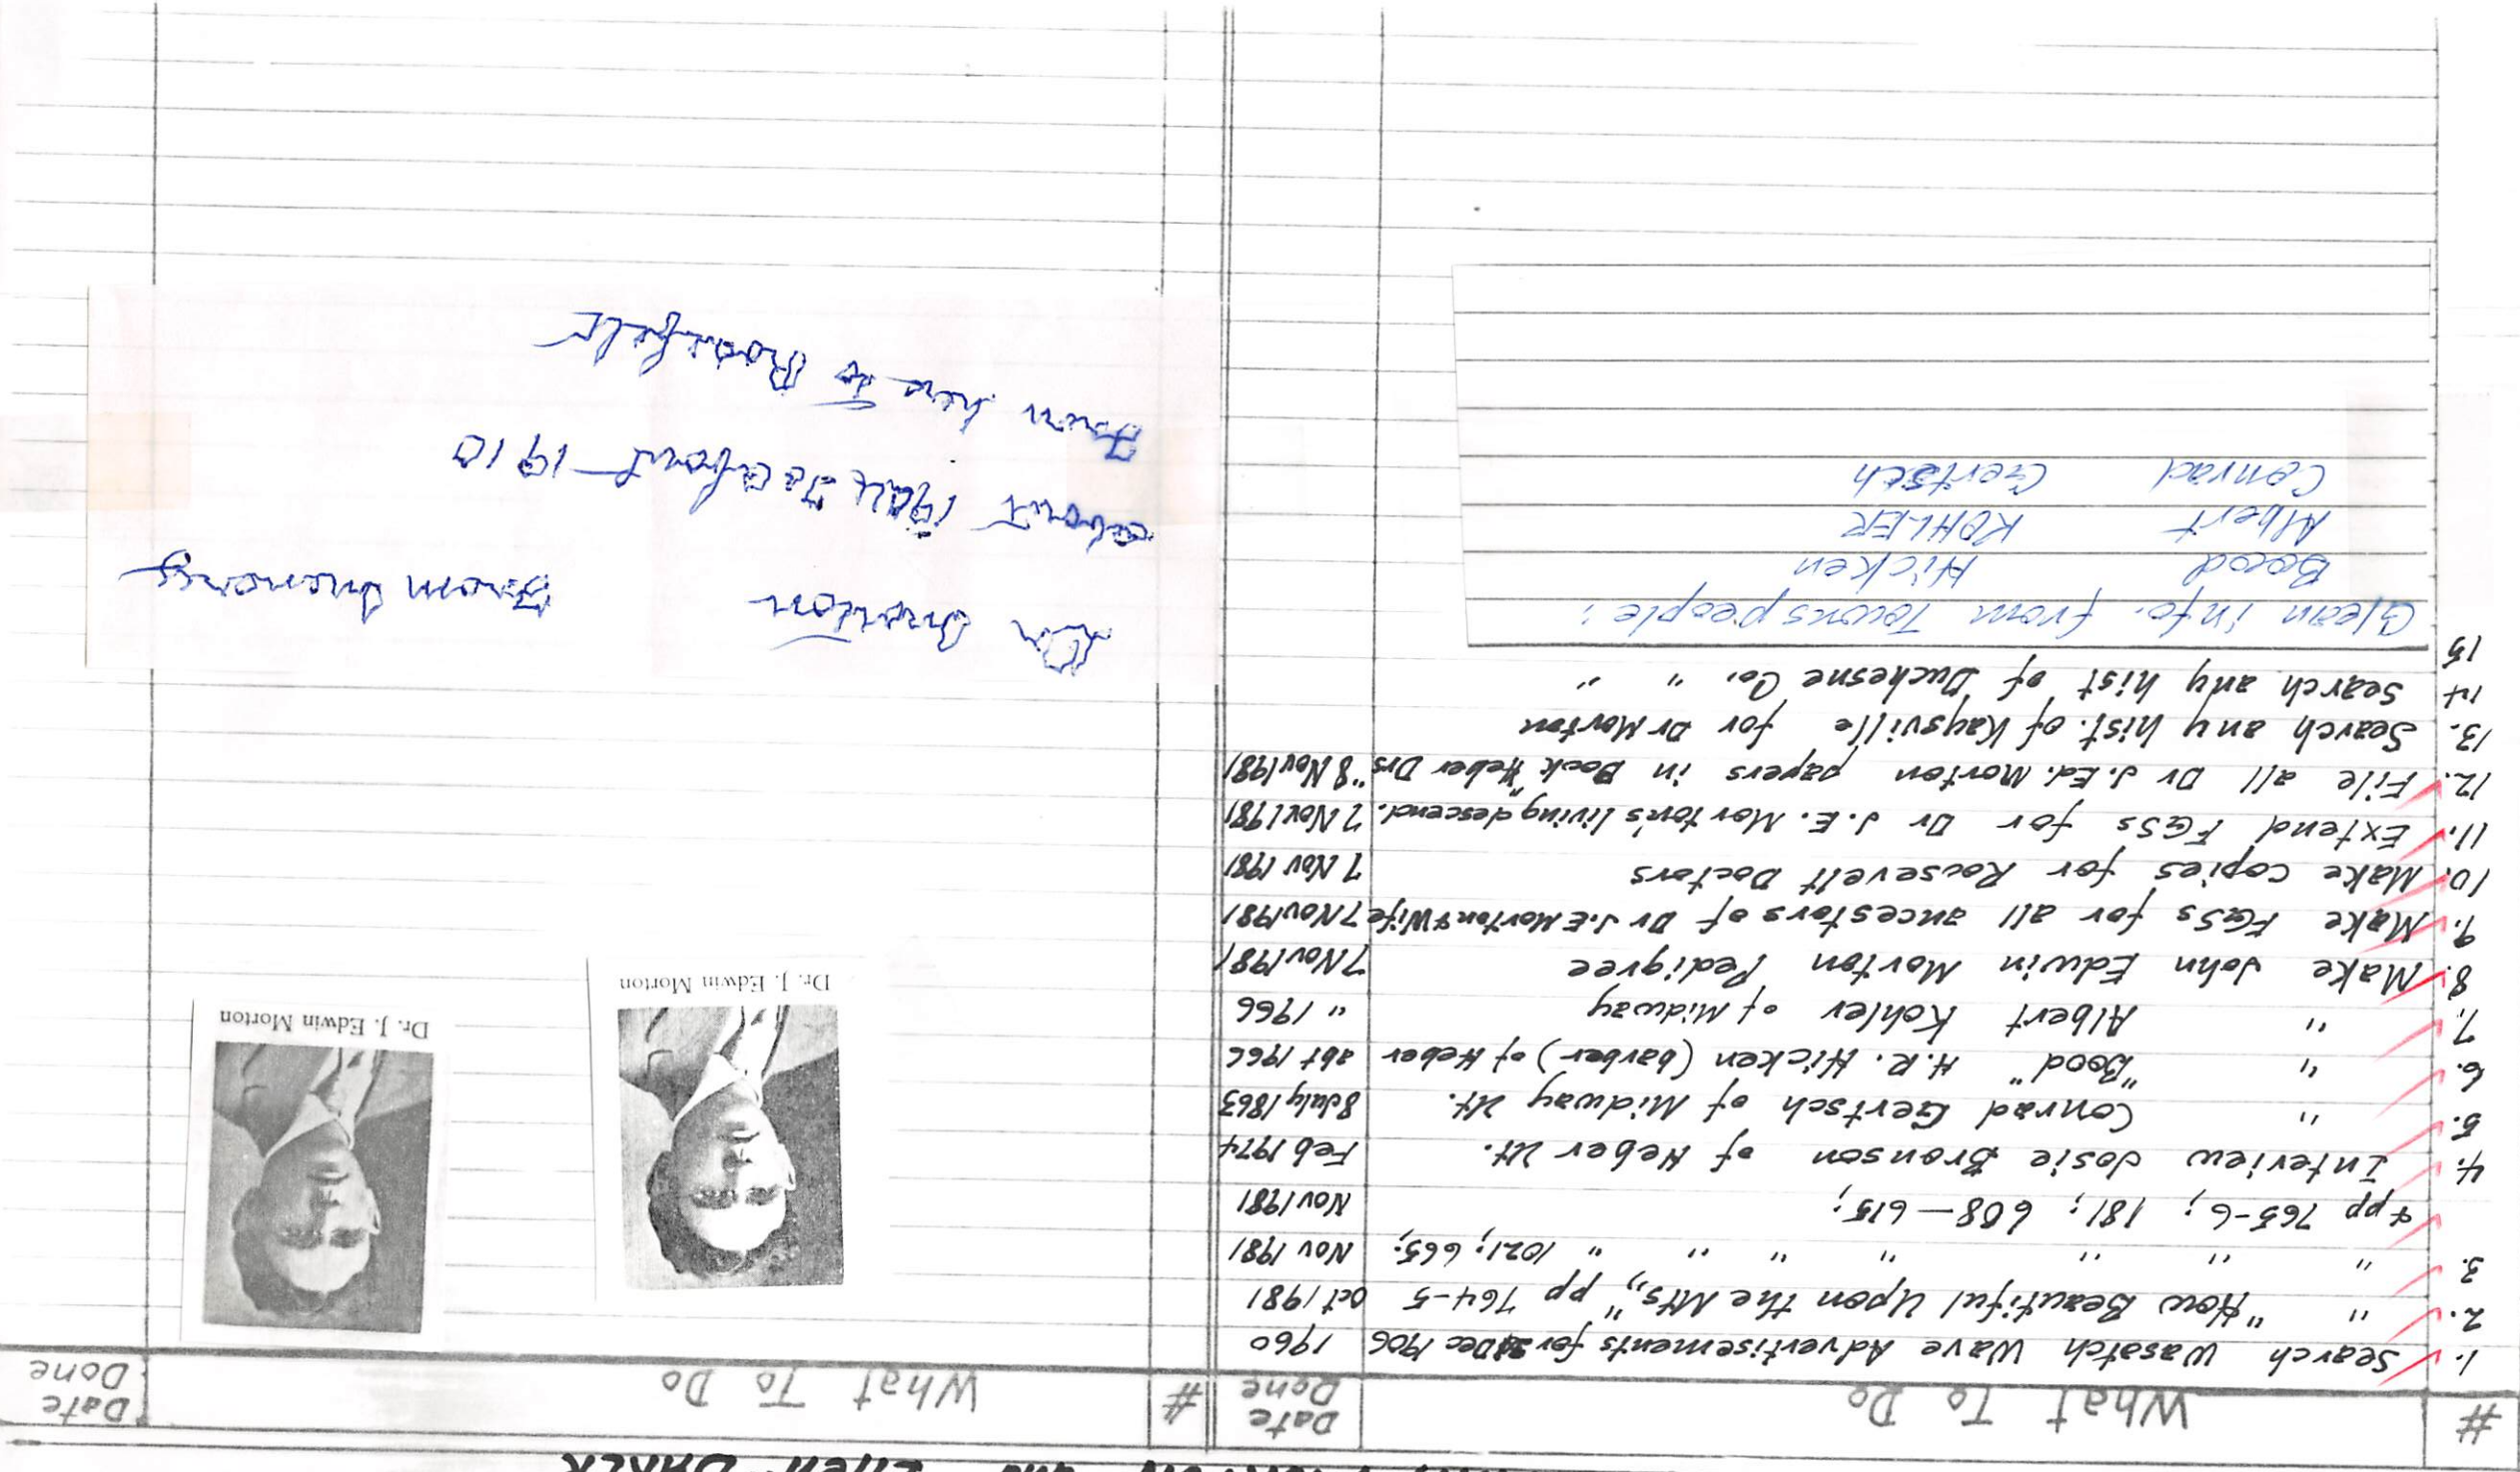 and Ellen BAKER
# What To Do Date Done # What To Do Date Done
1. Search Wasatch Wave Advertisements for Dec 1906 1960
2. " "How Beautiful Upon the Mts", pp 764-5 Oct 1981
3. " " " " " " 1021; 665; Nov 1981
& pp 765-6; 181; 608-615; Nov 1981
4. Interview Josie Bronson of Heber Ut. Feb 1974
5. " Conrad Gertsch of Midway Ut. 8 July 1863
6. " "Bood" H.R. Hicken (barber) of Heber abt 1966
7. " Albert Kohler of Midway " 1966
8. Make John Edwin Morton Pedigree 7 Nov 1981
9. Make FGSs for all ancestors of Dr J.E Morton & Wife 7 Nov 1981
10. Make copies for Roosevelt Doctors 7 Nov 1981
11. Extend FGSs for Dr J.E. Morton's living descend. 7 Nov 1981
12. File all Dr J.Ed. Morton papers in Book "Heber Drs" 8 Nov 1981
13. Search any hist. of Kaysville for Dr Morton
14 Search any hist of Duchesne Co. " "
15
Glean info. from Townspeople:
Bood Hicken
Albert KOHLER
Conrad Gertsch
Dr. J. Edwin Morton
Dr. J. Edwin Morton
Dr Morton From Memory
about to about 1910
From here to Roosfelt